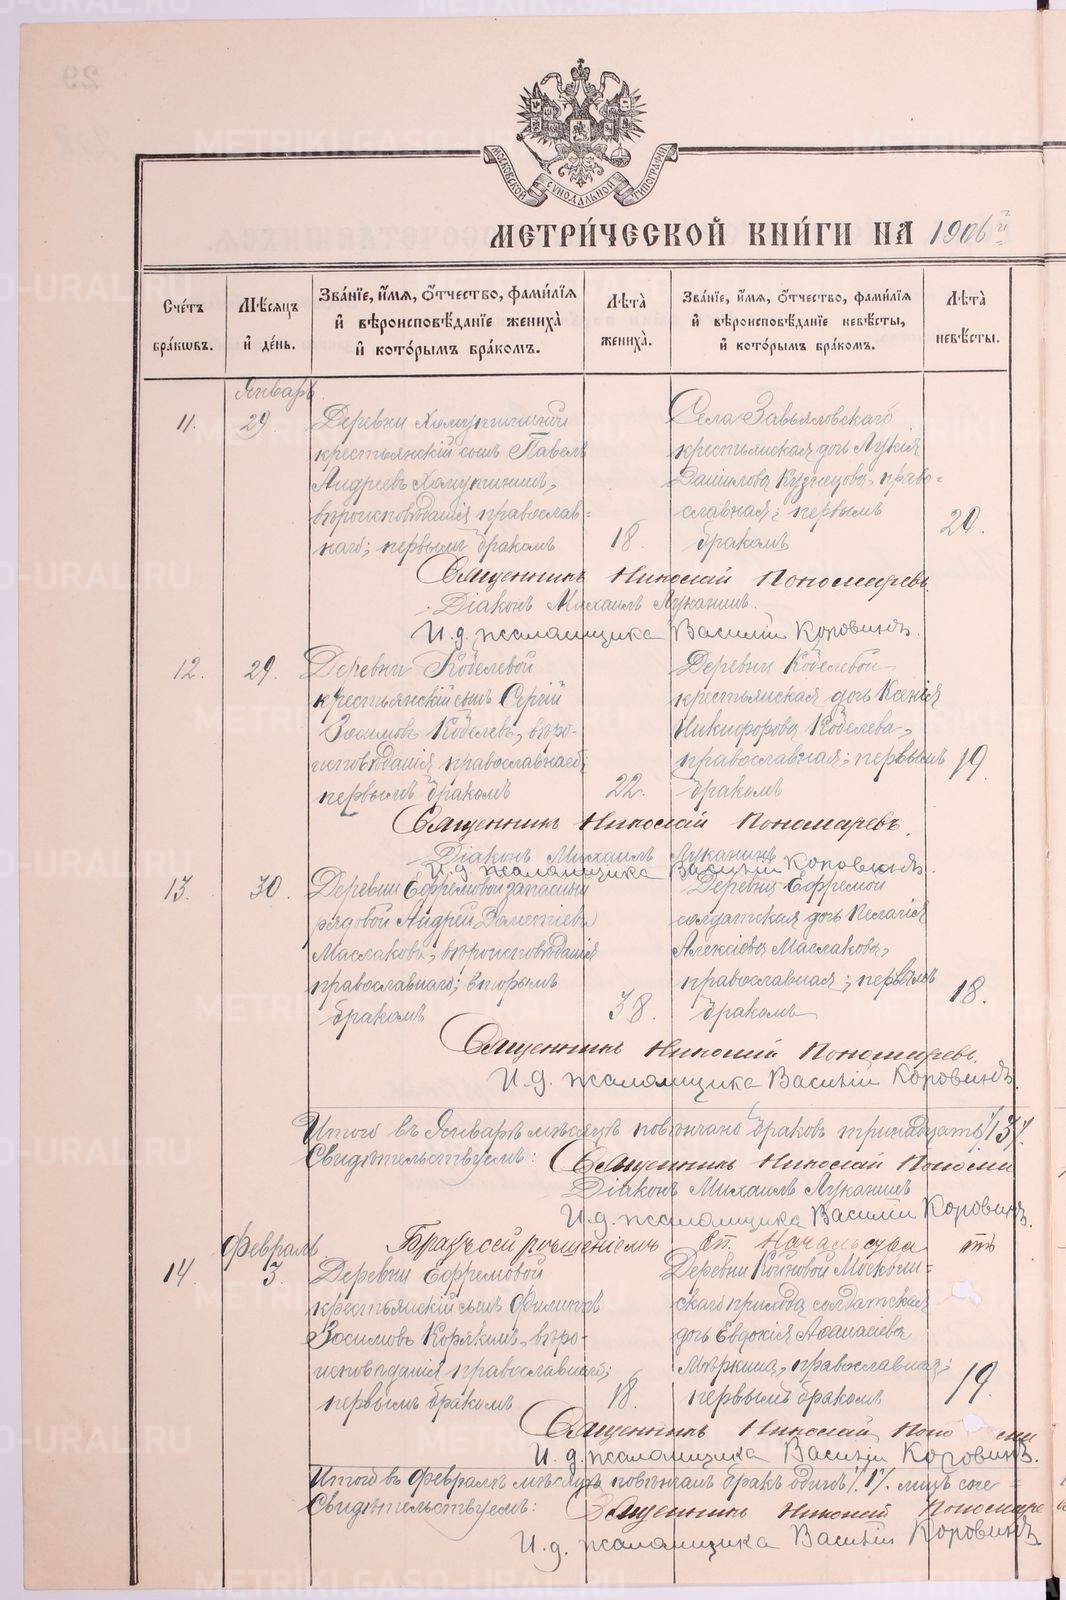 МОСКОВСКОЙ СѴНОДАЛЬНОЙ ТИПОГРАФІИ
МЕТРИ́ЧЕСКОЙ КНИ́ГИ НА 1906й
Сче́тъ бра́кωвъ.
Мѣ́сяцъ и́ де́нь.
Зва́нїе, и́мя, ѻ҆́тчество, фами́лїя и҆ вѣроисповѣ́данїе жениха̀ и҆ кото́рымъ бра́комъ.
Лѣ́та̀ жениха̀.
Зва́нїе, и́мя, ѻ҆́тчество, фами́лїя и҆ вѣроисповѣ́данїе невѣ́сты, и҆ кото́рымъ бра́комъ.
Лѣ́та̀ невѣ́сты.
Январь
11. 29.
Деревни
крестьянскій сынъ Павелъ
Андреевъ
вѣроисповѣданія православ-
наго; первымъ бракомъ
18.
Села Завьяловскаго
крестьянская дочь Лукія
Данилова Кузнецова, право-
славная; первымъ
бракомъ
20.
Священникъ Николай Пономаревъ.
Діаконъ Михаилъ Луканинъ.
И.д. псаломщика Василій Коровинъ.
12. 29.
Деревни Кобелевой
крестьянскій сынъ Сергій
Зосимовъ Кобелевъ, вѣро-
исповѣданія православнаго;
первымъ бракомъ
22.
Деревни Кобелевой
крестьянская дочь Ксенія
Никифорова Кобелева,
православная; первымъ
бракомъ
19.
Священникъ Николай Пономаревъ.
Діаконъ Михаилъ Луканинъ
И.д. псаломщика Василій Коровинъ.
13. 30.
Деревни Ефремовой запасный
рядовой Андрей
Маслаковъ, вѣроисповѣданія
православнаго; вторымъ
бракомъ
38.
Деревни Ефремой
солдатская дочь Пелагія
Алексіева Маслакова,
православная; первымъ
бракомъ
18.
Священникъ Николай Пономаревъ.
И.д. псаломщика Василій Коровинъ.
Итого въ Январѣ мѣсяцѣ повѣнчано браковъ тринадцать /13/.
Свидѣтельствуемъ: Священникъ Николай Пономи
Діаконъ Михаилъ Луканинъ
И.д. псаломщика Василій Коровинъ.
Февраль.
Бракъ сей рѣшеніемъ Еп. Начальства
14. 3.
Деревни Ефремовой
крестьянскій сынъ Филиппъ
Зосимовъ Корякинъ, вѣро-
исповѣданія православнаго;
первымъ бракомъ
18.
Деревни
скаго прихода солдатская
дочь Евдокія Аѳанасіева
православная;
первымъ бракомъ
19.
Священникъ Николай Поно
И.д. псаломщика Василій Коровинъ.
Итого въ Февралѣ мѣсяцѣ повѣнчанъ бракъ одинъ /1/. лицъ соче-
Свидѣтельствуемъ: Священникъ Николай Пономаре
И.д. псаломщика Василій Коровинъ.
METRIKI.GASO-URAL.RU